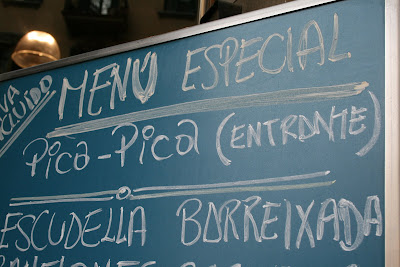 IVA
INCLUÍDO
MENÚ ESPECIAL
PICA-PICA (ENTRANTE)
ESCUDELLA BORREIXADA